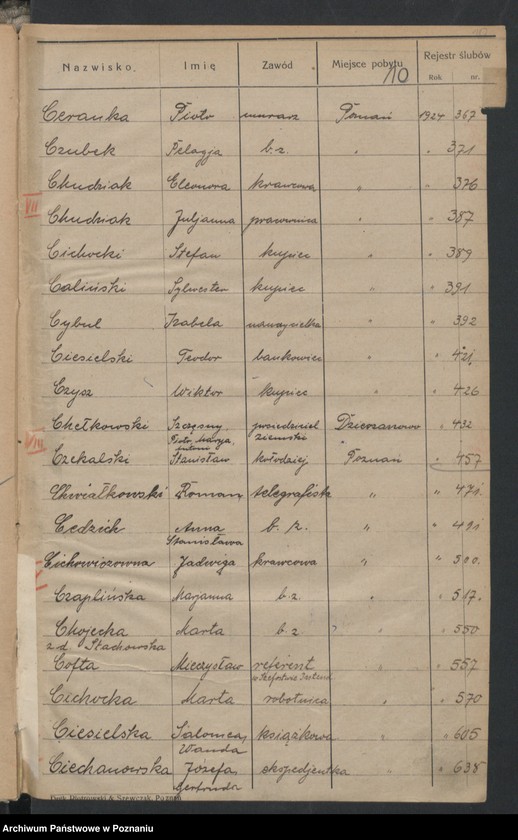 Nazwisko. Imię Zawód Miejsce pobytu Rejestr ślubów
Rok nr.
10
Ceranka Piotr murarz Poznań 1924 367
Czubek Pelagja b. z. " " 371
Chudziak Eleonora krawcowa " " 376
VII
Chudziak Juljanna pracownica " " 387
Cichocki Stefan kupiec " " 389
Caliński Sylwester kupiec " " 391
Cybul Izabela nauczycielka " " 392
Ciesielski Teodor bankowiec " " 421
Czysz Wiktor kupiec " " 426
Chełkowski Szczęsny posiedziciel Dzierzanowo " 432
Piotr, Marya, ziemski
Antoni
VIII
Czekalski Stanisław kołodziej Poznań " 457
Chwiałkowski Roman telegrafista " " 471
Cedzich Anna b. z. " " 491
Stanisława
Cichowiczowna Jadwiga krawcowa " " 500.
Czaplińska Marjanna b. z. " " 517.
Chojecka Marta b z " " 550
z d. Stachowska
Cofta Mieczysław referent " " 557
Cichocka Marta robotnica " " 570
Ciesielska Salomea książkowa " " 605
Wanda
Ciechanowska Józefa ekspedjentka " " 638
Gertruda
Piotr Piotrowski & Szewczyk, Poznań
Archiwum Państwowe w Poznaniu